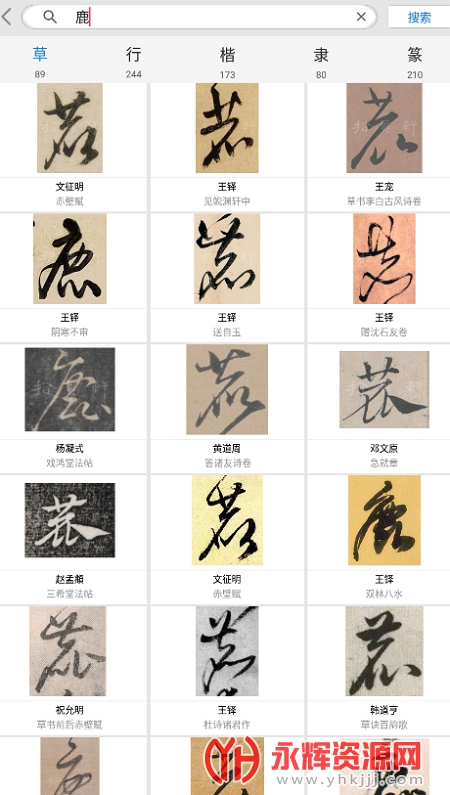 鹿
搜索
草 行 楷 隶 篆
89 244 173 80 210
鹿 鹿 鹿
文征明 王铎 王龙
赤壁赋 见妮渊轩中 草书李白古风诗卷
鹿 鹿 鹿
王铎 王铎 王铎
阴寒不审 送自玉 赠沈石友卷
鹿 鹿 鹿
杨凝式 黄道周 邓文原
戏鸿堂法帖 答诸友诗卷 急就章
鹿 鹿 鹿
赵孟頫 文征明 王铎
三希堂法帖 赤壁赋 双林八水
鹿 鹿 鹿
祝允明 王铎 韩道亨
草书前后赤壁赋 杜诗诸君作 草诀百韵歌
永辉资源网
www.yhkjjj.com